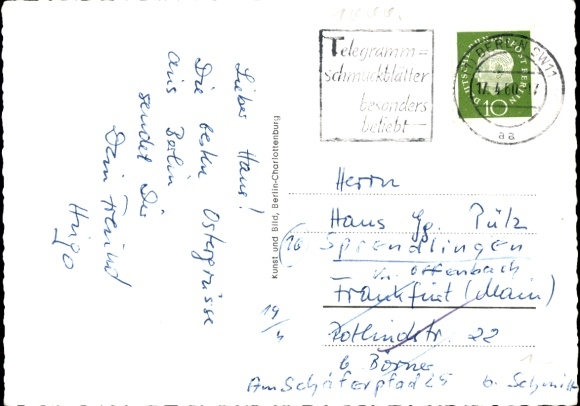 Lieber Hans!
Die besten Ostergrüsse
aus Berlin
sendet Dir
Dein Freund
Hugo
14/4
Kunst und Bild, Berlin-Charlottenburg
Telegramm=
schmuckblätter
besonders
beliebt
BERLIN SW11
17.4.60
aa
10
Herrn
Hans Gg. Pülz
(16) Sprendlingen
Kr. Offenbach
Frankfurt (Main)
Rotlindstr. 22
b. Börner
Am Schäferpfad 25 b. Schmitt